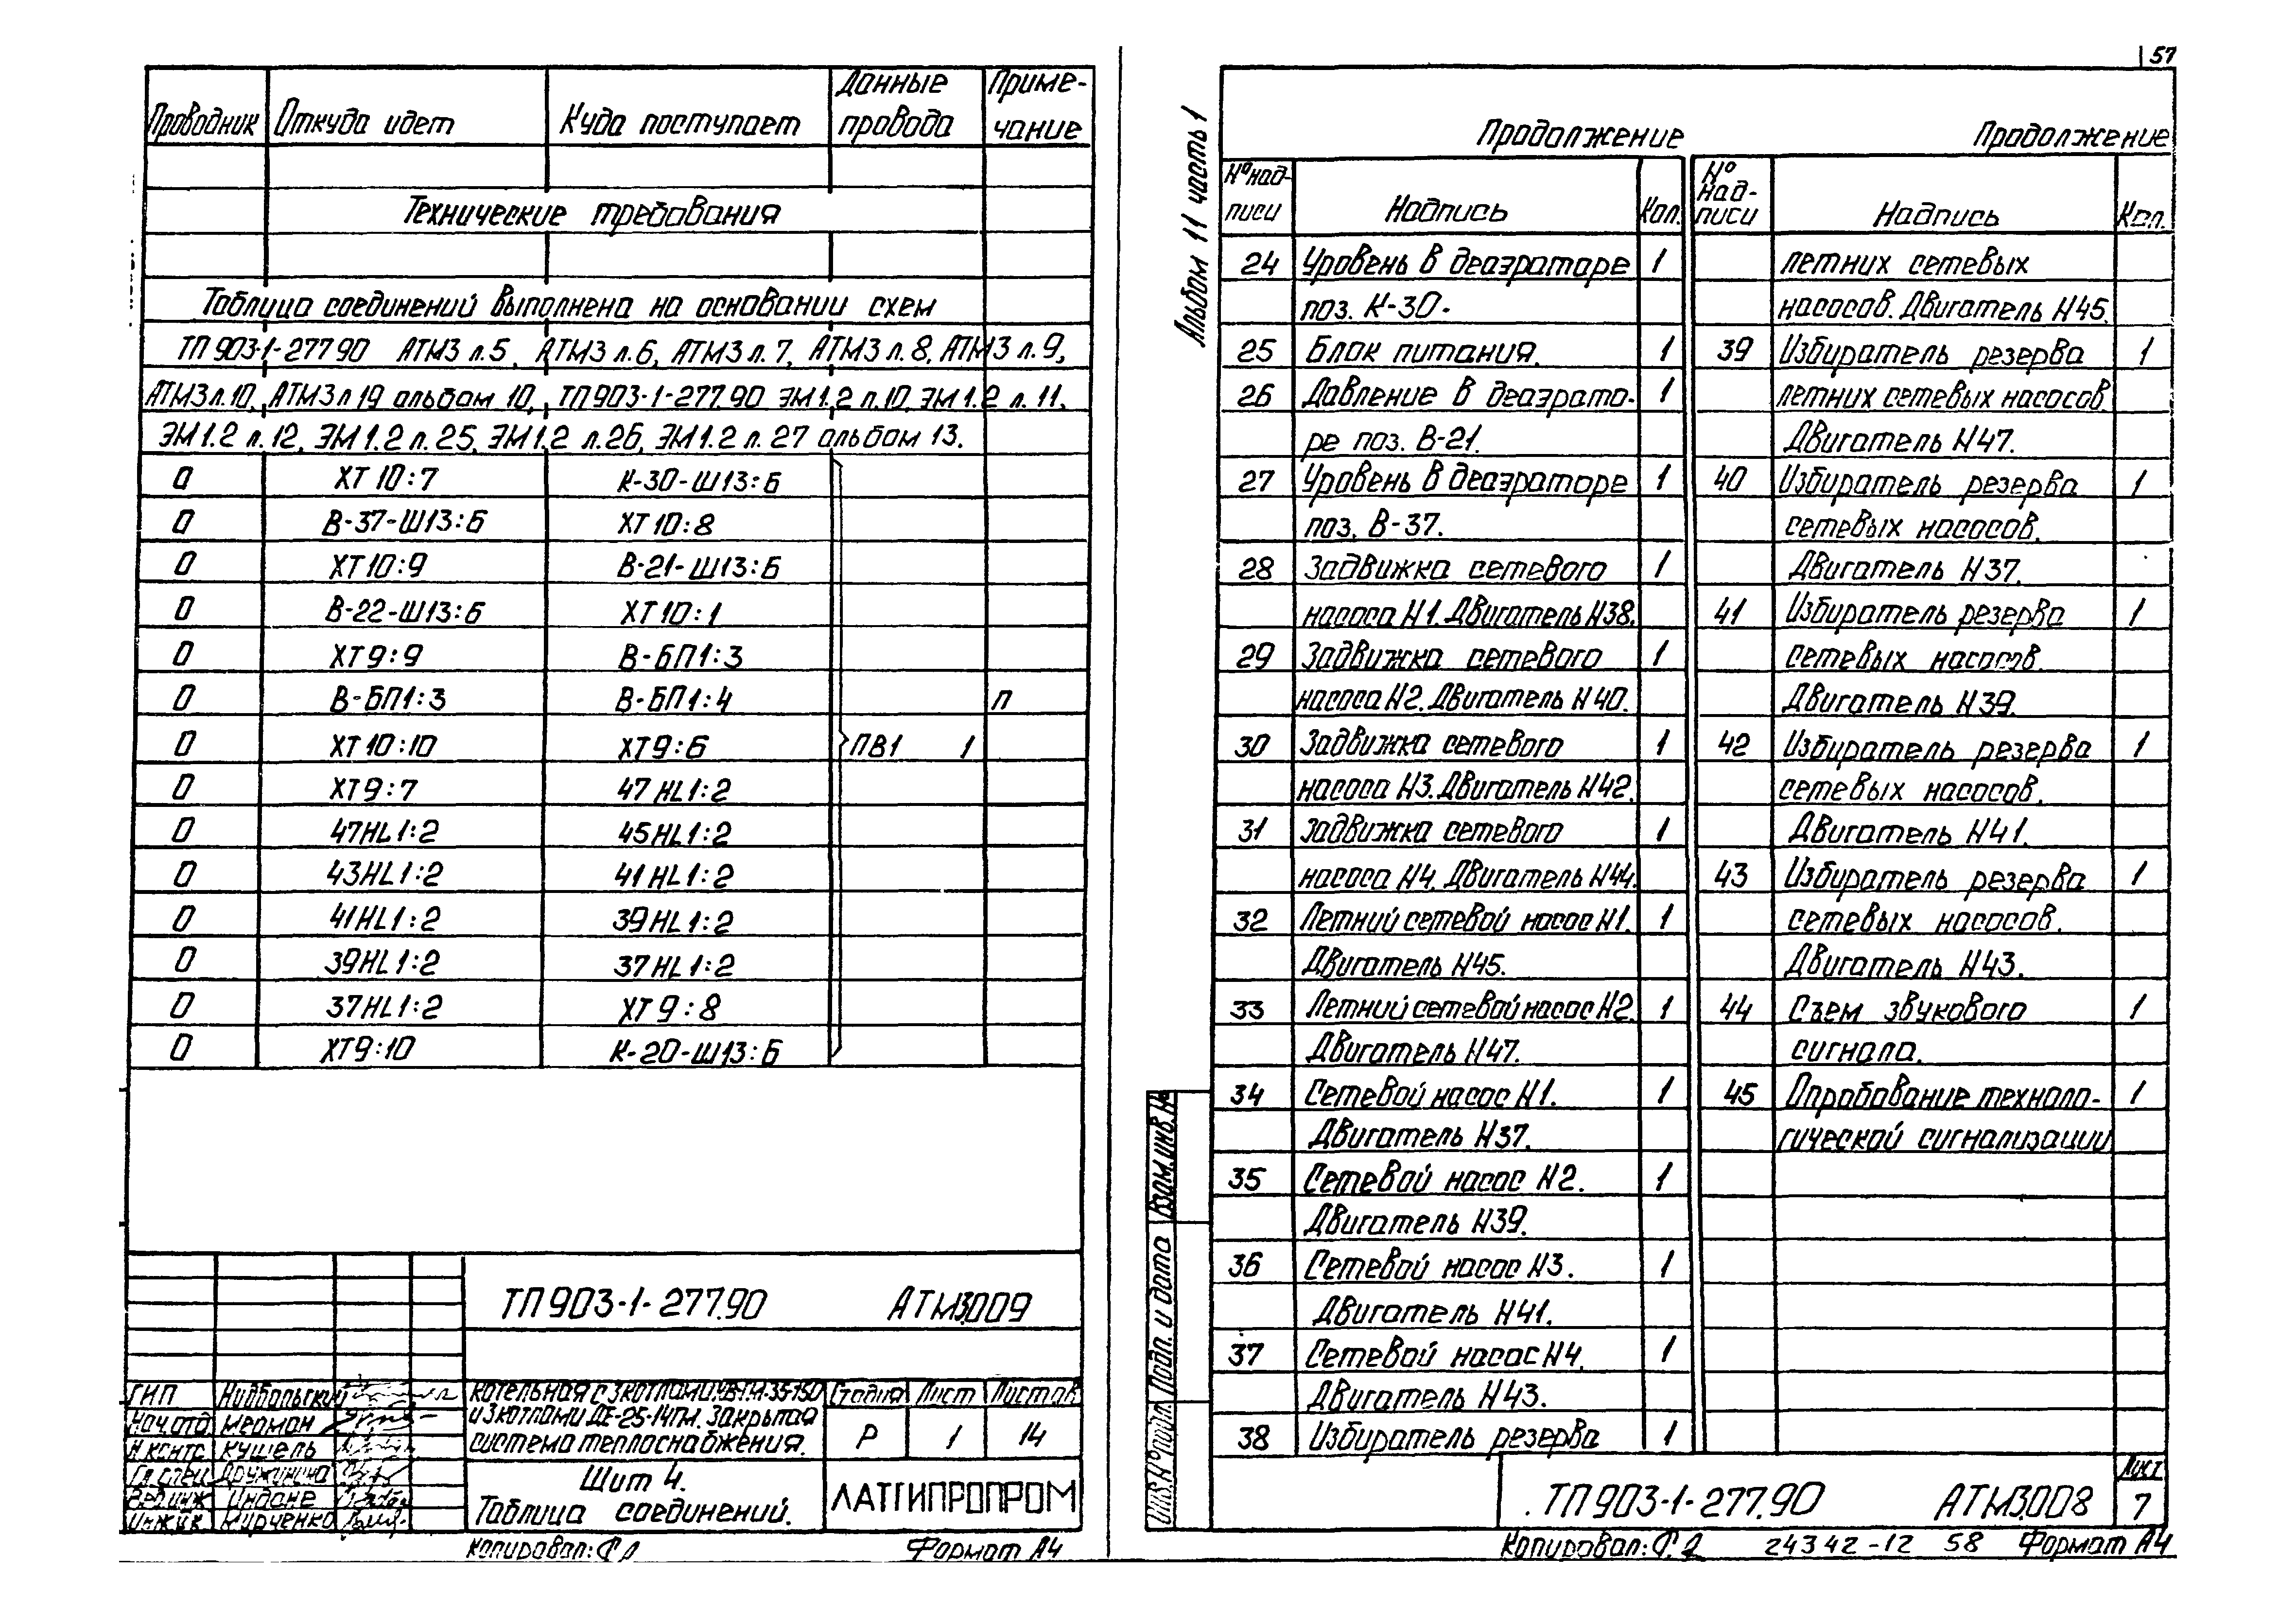 57
Проводник Откуда идет Куда поступает Данные провода Примечание
Технические требования
Таблица соединений выполнена на основании схем
ТП 903-1-277.90 АТМ3 л.5, АТМ3 л.6, АТМ3 л.7, АТМ3 л.8, АТМ3 л.9,
АТМ3 л.10, АТМ3 л 19 альбом 10, ТП903-1-277.90 ЭМ1.2 л.10, ЭМ1.2 л.11,
ЭМ1.2 л.12, ЭМ1.2 л.25, ЭМ1.2 л.26, ЭМ1.2 л.27 альбом 13.
0 ХТ10:7 К-30-Ш13:Б
0 В-37-Ш13:Б ХТ10:8
0 ХТ10:9 В-21-Ш13:Б
0 В-22-Ш13:Б ХТ10:1
0 ХТ9:9 В-БП1:3
0 В-БП1:3 В-БП1:4 п
0 ХТ10:10 ХТ9:6 ПВ1 1
0 ХТ9:7 47HL1:2
0 47HL1:2 45HL1:2
0 43HL1:2 41HL1:2
0 41HL1:2 39HL1:2
0 39HL1:2 37HL1:2
0 37HL1:2 ХТ9:8
0 ХТ9:10 К-20-Ш13:Б
ТП903-1-277.90 АТМ3.009
ГИП Нидбольский
Нач.отд. Мерман
Н.контр. Кушель
Гл.спец. Дружинина
Вед.инж. Индане
Инж.Iк. Кирченко
Котельная с 3 котлами КВ-ГМ-35-150
и 3 котлами ДЕ-25-14ГМ. Закрытая
система теплоснабжения.
Стадия Лист Листов
Р 1 14
Щит 4.
Таблица соединений.
ЛАТГИПРОПРОМ
Копировал: Формат А4
Альбом 11 часть 1
Продолжение
№ надписи Надпись Кол.
24 Уровень в деаэраторе 1
поз. К-30.
25 Блок питания. 1
26 Давление в деаэрато- 1
ре поз. В-21.
27 Уровень в деаэраторе 1
поз. В-37.
28 Задвижка сетевого 1
насоса Н1. Двигатель Н38.
29 Задвижка сетевого 1
насоса Н2. Двигатель Н40.
30 Задвижка сетевого 1
насоса Н3. Двигатель Н42.
31 Задвижка сетевого 1
насоса Н4. Двигатель Н44.
32 Летний сетевой насос Н1. 1
Двигатель Н45.
33 Летний сетевой насос Н2. 1
Двигатель Н47.
34 Сетевой насос Н1. 1
Двигатель Н37.
35 Сетевой насос Н2. 1
Двигатель Н39.
36 Сетевой насос Н3. 1
Двигатель Н41.
37 Сетевой насос Н4. 1
Двигатель Н43.
38 Избиратель резерва 1
Продолжение
№ надписи Надпись Кол.
летних сетевых
насосов. Двигатель Н45.
39 Избиратель резерва 1
летних сетевых насосов.
Двигатель Н47.
40 Избиратель резерва 1
сетевых насосов.
Двигатель Н37.
41 Избиратель резерва 1
сетевых насосов.
Двигатель Н39.
42 Избиратель резерва 1
сетевых насосов.
Двигатель Н41.
43 Избиратель резерва 1
сетевых насосов.
Двигатель Н43.
44 Съем звукового 1
сигнала.
45 Опробование техноло- 1
гической сигнализации
Взам.инв.№
Подп. и дата
Инв.№ подл.
ТП903-1-277.90 АТМ3.008
Лист
7
Копировал: 24342-12 58 Формат А4